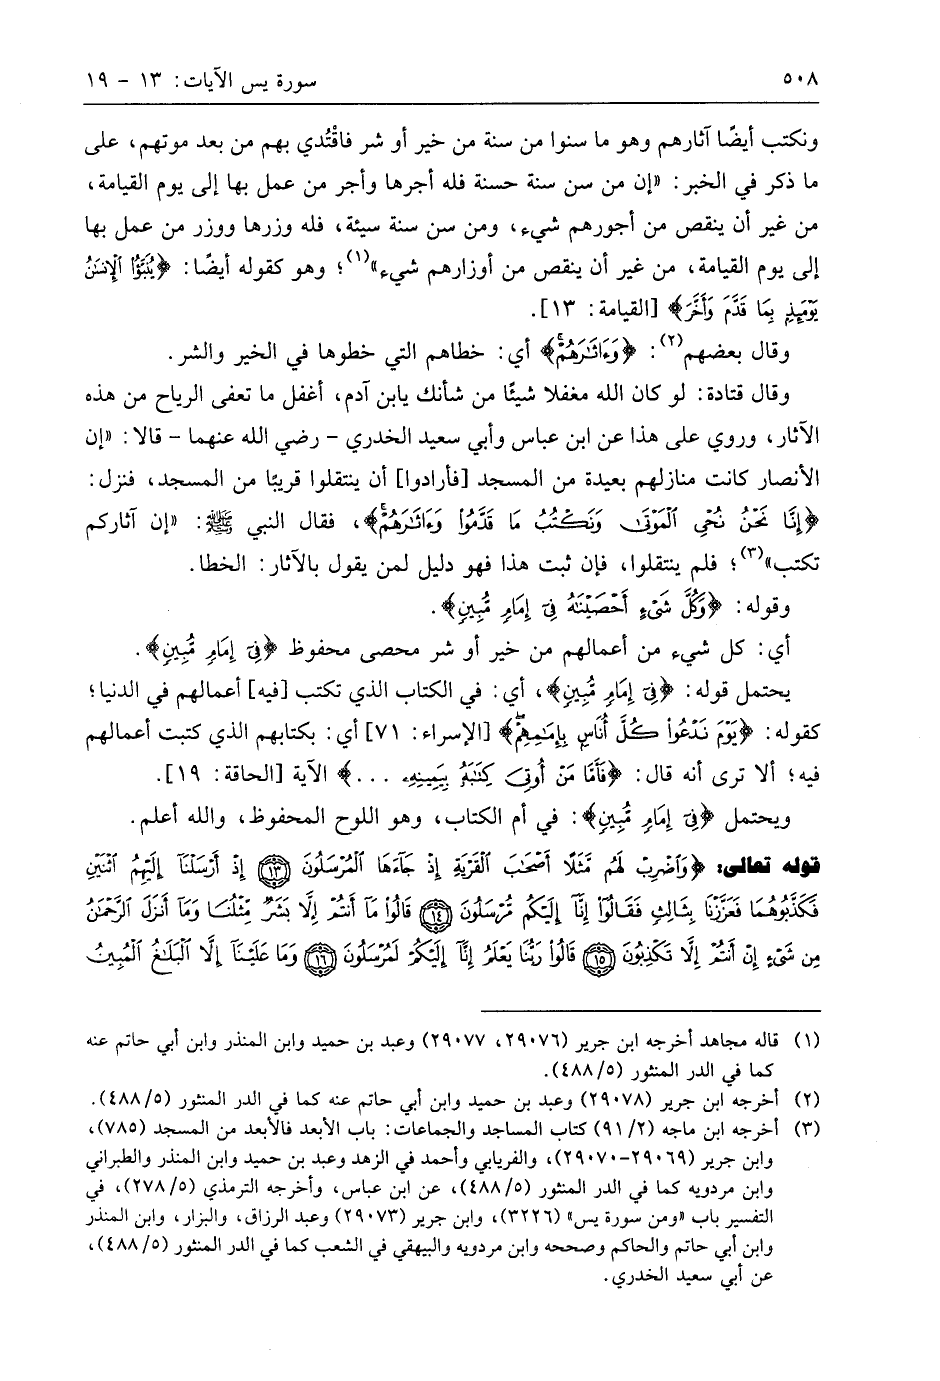 ٥٠٨ سورة يس الآيات: ١٣ - ١٩
ونكتب أيضًا آثارهم وهو ما سنوا من سنة من خير أو شر فاقْتُدي بهم من بعد موتهم، على
ما ذكر في الخبر: «إن من سن سنة حسنة فله أجرها وأجر من عمل بها إلى يوم القيامة،
من غير أن ينقص من أجورهم شيء، ومن سن سنة سيئة، فله وزرها ووزر من عمل بها
إلى يوم القيامة، من غير أن ينقص من أوزارهم شيء»(١)؛ وهو كقوله أيضًا: ﴿يُنَبَّؤُا الْإِنسَٰنُ
يَوْمَئِذٍ بِمَا قَدَّمَ وَأَخَّرَ﴾ [القيامة: ١٣].
وقال بعضهم(٢): ﴿وَءَاثَٰرَهُمْۚ﴾ أي: خطاهم التي خطوها في الخير والشر.
وقال قتادة: لو كان الله مغفلا شيئًا من شأنك يابن آدم، أغفل ما تعفى الرياح من هذه
الآثار، وروي على هذا عن ابن عباس وأبي سعيد الخدري - رضي الله عنهما - قالا: «إن
الأنصار كانت منازلهم بعيدة من المسجد [فأرادوا] أن ينتقلوا قريبًا من المسجد، فنزل:
﴿إِنَّا نَحْنُ نُحْيِ الْمَوْتَىٰ وَنَكْتُبُ مَا قَدَّمُوا۟ وَءَاثَٰرَهُمْۚ﴾، فقال النبي ﷺ: «إن آثاركم
تكتب»(٣)؛ فلم ينتقلوا، فإن ثبت هذا فهو دليل لمن يقول بالآثار: الخطا.
وقوله: ﴿وَكُلَّ شَيْءٍ أَحْصَيْنَٰهُ فِيٓ إِمَامٍ مُّبِينٍ﴾.
أي: كل شيء من أعمالهم من خير أو شر محصى محفوظ ﴿فِيٓ إِمَامٍ مُّبِينٍ﴾.
يحتمل قوله: ﴿فِيٓ إِمَامٍ مُّبِينٍ﴾، أي: في الكتاب الذي تكتب [فيه] أعمالهم في الدنيا؛
كقوله: ﴿يَوْمَ نَدْعُوا۟ كُلَّ أُنَاسٍ بِإِمَٰمِهِمْۖ﴾ [الإسراء: ٧١] أي: بكتابهم الذي كتبت أعمالهم
فيه؛ ألا ترى أنه قال: ﴿فَأَمَّا مَنْ أُوتِيَ كِتَٰبَهُۥ بِيَمِينِهِۦ ...﴾ الآية [الحاقة: ١٩].
ويحتمل ﴿فِيٓ إِمَامٍ مُّبِينٍ﴾: في أم الكتاب، وهو اللوح المحفوظ، والله أعلم.
قوله تعالى: ﴿وَاضْرِبْ لَهُم مَّثَلًا أَصْحَٰبَ الْقَرْيَةِ إِذْ جَآءَهَا الْمُرْسَلُونَ ١٣ إِذْ أَرْسَلْنَآ إِلَيْهِمُ اثْنَيْنِ
فَكَذَّبُوهُمَا فَعَزَّزْنَا بِثَالِثٍ فَقَالُوٓا۟ إِنَّآ إِلَيْكُم مُّرْسَلُونَ ١٤ قَالُوا۟ مَآ أَنتُمْ إِلَّا بَشَرٌ مِّثْلُنَا وَمَآ أَنزَلَ الرَّحْمَٰنُ
مِن شَيْءٍ إِنْ أَنتُمْ إِلَّا تَكْذِبُونَ ١٥ قَالُوا۟ رَبُّنَا يَعْلَمُ إِنَّآ إِلَيْكُمْ لَمُرْسَلُونَ ١٦ وَمَا عَلَيْنَآ إِلَّا الْبَلَٰغُ الْمُبِينُ
(١) قاله مجاهد أخرجه ابن جرير (٢٩٠٧٦، ٢٩٠٧٧) وعبد بن حميد وابن المنذر وابن أبي حاتم عنه
كما في الدر المنثور (٤٨٨/٥).
(٢) أخرجه ابن جرير (٢٩٠٧٨) وعبد بن حميد وابن أبي حاتم عنه كما في الدر المنثور (٤٨٨/٥).
(٣) أخرجه ابن ماجه (٩١/٢) كتاب المساجد والجماعات: باب الأبعد فالأبعد من المسجد (٧٨٥)،
وابن جرير (٢٩٠٦٩-٢٩٠٧٠)، والفريابي وأحمد في الزهد وعبد بن حميد وابن المنذر والطبراني
وابن مردويه كما في الدر المنثور (٤٨٨/٥)، عن ابن عباس، وأخرجه الترمذي (٢٧٨/٥)، في
التفسير باب «ومن سورة يس» (٣٢٢٦)، وابن جرير (٢٩٠٧٣) وعبد الرزاق، والبزار، وابن المنذر
وابن أبي حاتم والحاكم وصححه وابن مردويه والبيهقي في الشعب كما في الدر المنثور (٤٨٨/٥)،
عن أبي سعيد الخدري.